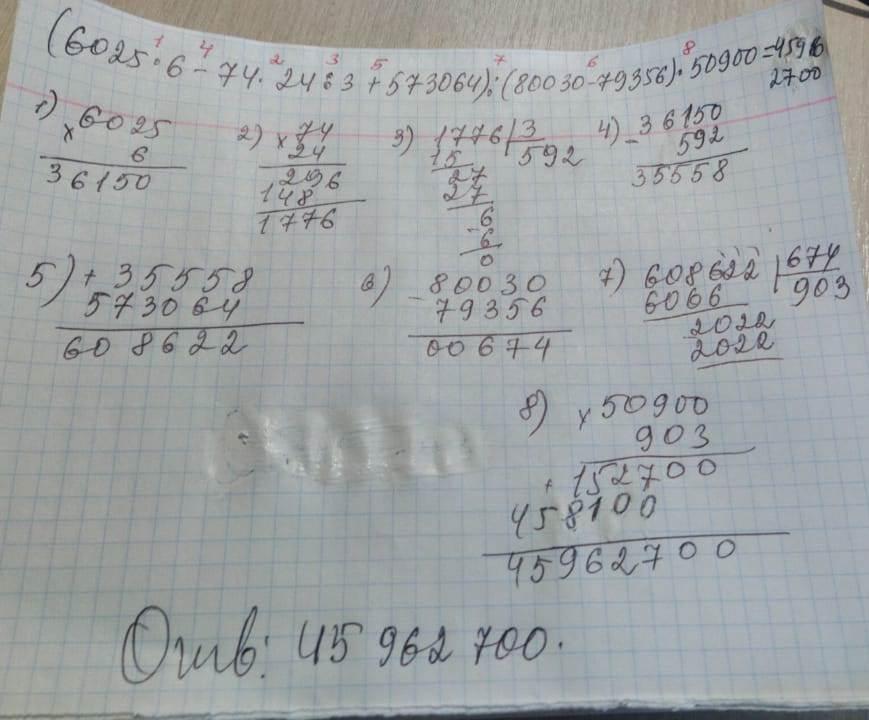 (6025·6-74·24:3+573064):(80030-79356)·50900=4596
1 4 2 3 5 7 6 8
2700
1) ×6025
6
36150
2) ×74
24
296
148
1776
3) 1776|3
15 592
27
27
-6
6
0
4) -36150
592
35558
5) +35558
573064
608622
6) -80030
79356
00674
7) 608622|674
6066 903
2022
2022
8) ×50900
903
+152700
458100
45962700
Отв: 45 962 700.